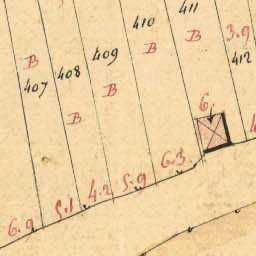 407
B
408
B
409
B
410
B
411
B
3.9
412
6.
6.9
5.1
4.2
5.9
6.3
4